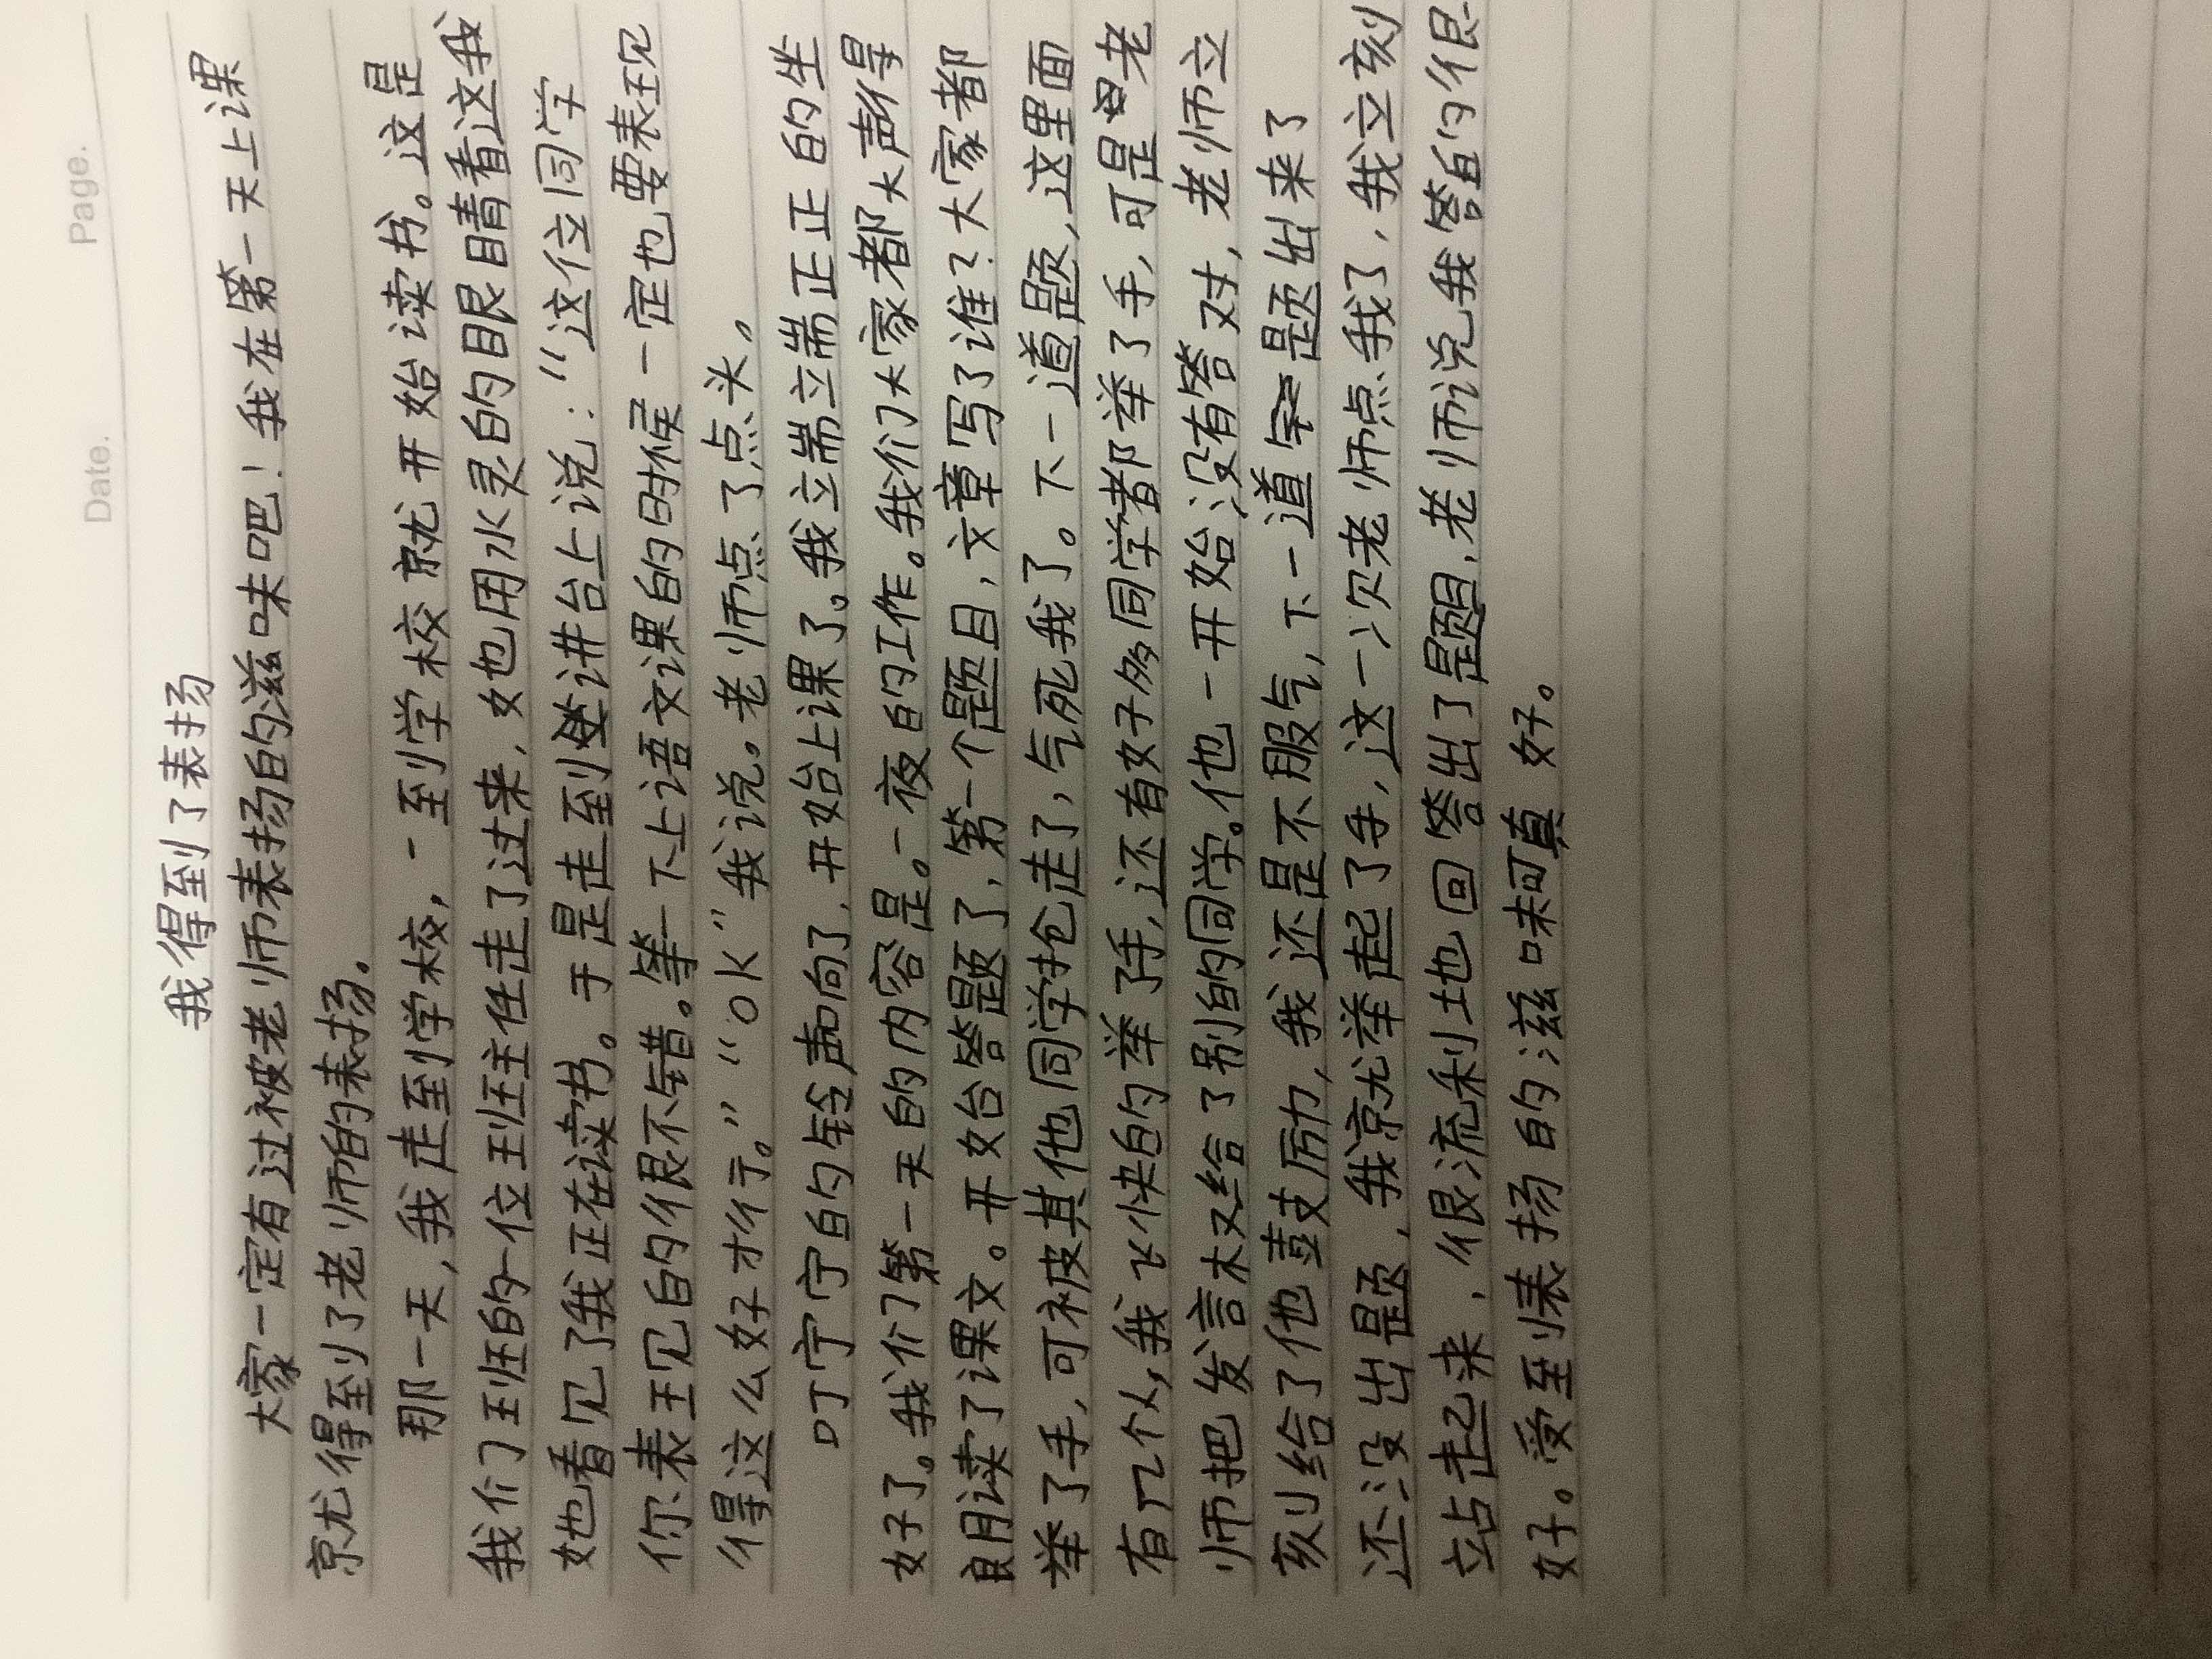 Date.
Page.
我得到了表扬
大家一定有过被老师表扬的滋味吧！我在第一天上课
就得到了老师的表扬。
那一天，我走到学校，一到学校就开始读书。这是
我们班的一位班主任走了过来，她用水灵的眼睛看这我
她看见了我正在读书。于是走到讲台上说：“这位同学
你表现的很不错。等一下上语文课的时候一定也要表现
得这么好才行。”“OK”我说。老师点了点头。
叮宁宁的铃声向了，开始上课了。我立端立端正正的坐
好了。我们第一天的内容是。一夜的工作。我们大家都大声得
朗读了课文。开始答题了，第一个题目，文章写了谁？大家都
举了手，可被其他同学抢走了，气死我了。下一道题，这里面
有几个人，我飞快的举了手，还有好多同学都举了手，可是老
师把发言权给了别的同学。他一开始没有答对，老师立
刻给了他鼓励，我还是不服气，下一道题出来了
还没出题，我就举起了手，这一次老师点我了，我立刻
站起来，很流利地回答出了题目，老师说我答的很
好。受到表扬的滋味可真好。